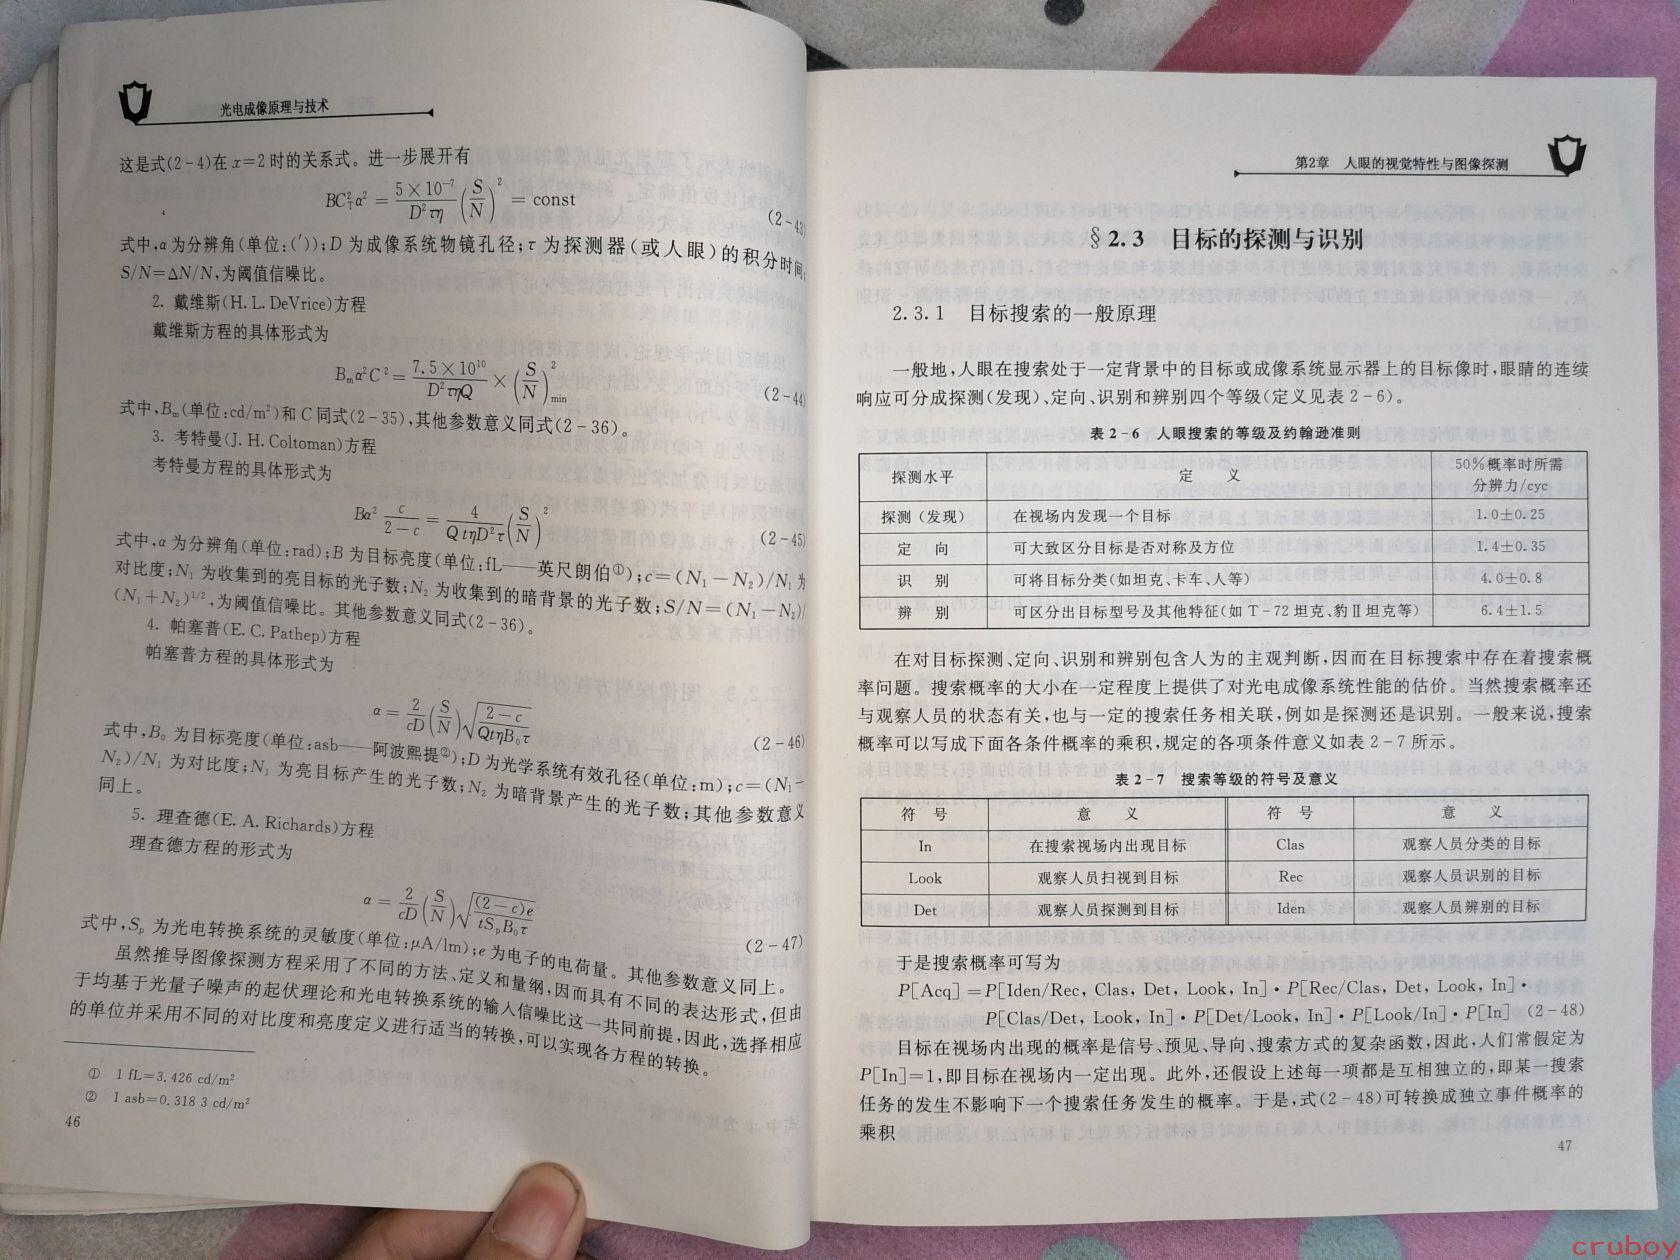 光电成像原理与技术
这是式(2-4)在 x=2 时的关系式。进一步展开有
BC_T^2 α^2 = \frac{5×10^{-7}}{D^2 τη} (\frac{S}{N})^2 = const
(2-43)
式中,α为分辨角(单位:(′));D 为成像系统物镜孔径;τ 为探测器(或人眼)的积分时间;
S/N=ΔN/N,为阈值信噪比。
2. 戴维斯(H. L. DeVrice)方程
戴维斯方程的具体形式为
B_m α^2 C^2 = \frac{7.5×10^{10}}{D^2 τηQ} × (\frac{S}{N})^2_{min}
(2-44)
式中,B_m(单位:cd/m²)和 C 同式(2-35),其他参数意义同式(2-36)。
3. 考特曼(J. H. Coltoman)方程
考特曼方程的具体形式为
Bα^2 \frac{c}{2-c} = \frac{4}{QtηD^2 τ} (\frac{S}{N})^2
(2-45)
式中,α 为分辨角(单位:rad);B 为目标亮度(单位:fL——英尺朗伯①);c=(N₁-N₂)/N₁ 为
对比度;N₁ 为收集到的亮目标的光子数;N₂ 为收集到的暗背景的光子数;S/N=(N₁-N₂)/
(N₁+N₂)^{1/2},为阈值信噪比。其他参数意义同式(2-36)。
4. 帕塞普(E. C. Pathep)方程
帕塞普方程的具体形式为
α = \frac{2}{cD} (\frac{S}{N}) \sqrt{\frac{2-c}{QtηB_0 τ}}
(2-46)
式中,B₀ 为目标亮度(单位:asb——阿波熙提②);D 为光学系统有效孔径(单位:m);c=(N₁-
N₂)/N₁ 为对比度;N₁ 为亮目标产生的光子数;N₂ 为暗背景产生的光子数;其他参数意义
同上。
5. 理查德(E. A. Richards)方程
理查德方程的形式为
α = \frac{2}{cD} (\frac{S}{N}) \sqrt{\frac{(2-c)e}{tS_p B_0 τ}}
(2-47)
式中,S_p 为光电转换系统的灵敏度(单位:μA/lm);e 为电子的电荷量。其他参数意义同上。
虽然推导图像探测方程采用了不同的方法、定义和量纲,因而具有不同的表达形式,但由
于均基于光量子噪声的起伏理论和光电转换系统的输入信噪比这一共同前提,因此,选择相应
的单位并采用不同的对比度和亮度定义进行适当的转换,可以实现各方程的转换。
① 1 fL=3.426 cd/m²
② 1 asb=0.318 3 cd/m²
46
第2章 人眼的视觉特性与图像探测
§2.3 目标的探测与识别
2.3.1 目标搜索的一般原理
一般地,人眼在搜索处于一定背景中的目标或成像系统显示器上的目标像时,眼睛的连续
响应可分成探测(发现)、定向、识别和辨别四个等级(定义见表 2-6)。
表 2-6 人眼搜索的等级及约翰逊准则
探测水平 定 义 50%概率时所需
分辨力/cyc
探测(发现) 在视场内发现一个目标 1.0±0.25
定 向 可大致区分目标是否对称及方位 1.4±0.35
识 别 可将目标分类(如坦克、卡车、人等) 4.0±0.8
辨 别 可区分出目标型号及其他特征(如 T-72 坦克、豹Ⅱ坦克等) 6.4±1.5
在对目标探测、定向、识别和辨别包含人为的主观判断,因而在目标搜索中存在着搜索概
率问题。搜索概率的大小在一定程度上提供了对光电成像系统性能的估价。当然搜索概率还
与观察人员的状态有关,也与一定的搜索任务相关联,例如是探测还是识别。一般来说,搜索
概率可以写成下面各条件概率的乘积,规定的各项条件意义如表 2-7 所示。
表 2-7 搜索等级的符号及意义
符 号 意 义 符 号 意 义
In 在搜索视场内出现目标 Clas 观察人员分类的目标
Look 观察人员扫视到目标 Rec 观察人员识别的目标
Det 观察人员探测到目标 Iden 观察人员辨别的目标
于是搜索概率可写为
P[Acq]=P[Iden/Rec, Clas, Det, Look, In]·P[Rec/Clas, Det, Look, In]·
P[Clas/Det, Look, In]·P[Det/Look, In]·P[Look/In]·P[In] (2-48)
目标在视场内出现的概率是信号、预见、导向、搜索方式的复杂函数,因此,人们常假定为
P[In]=1,即目标在视场内一定出现。此外,还假设上述每一项都是互相独立的,即某一搜索
任务的发生不影响下一个搜索任务发生的概率。于是,式(2-48)可转换成独立事件概率的
乘积
47
cruboy